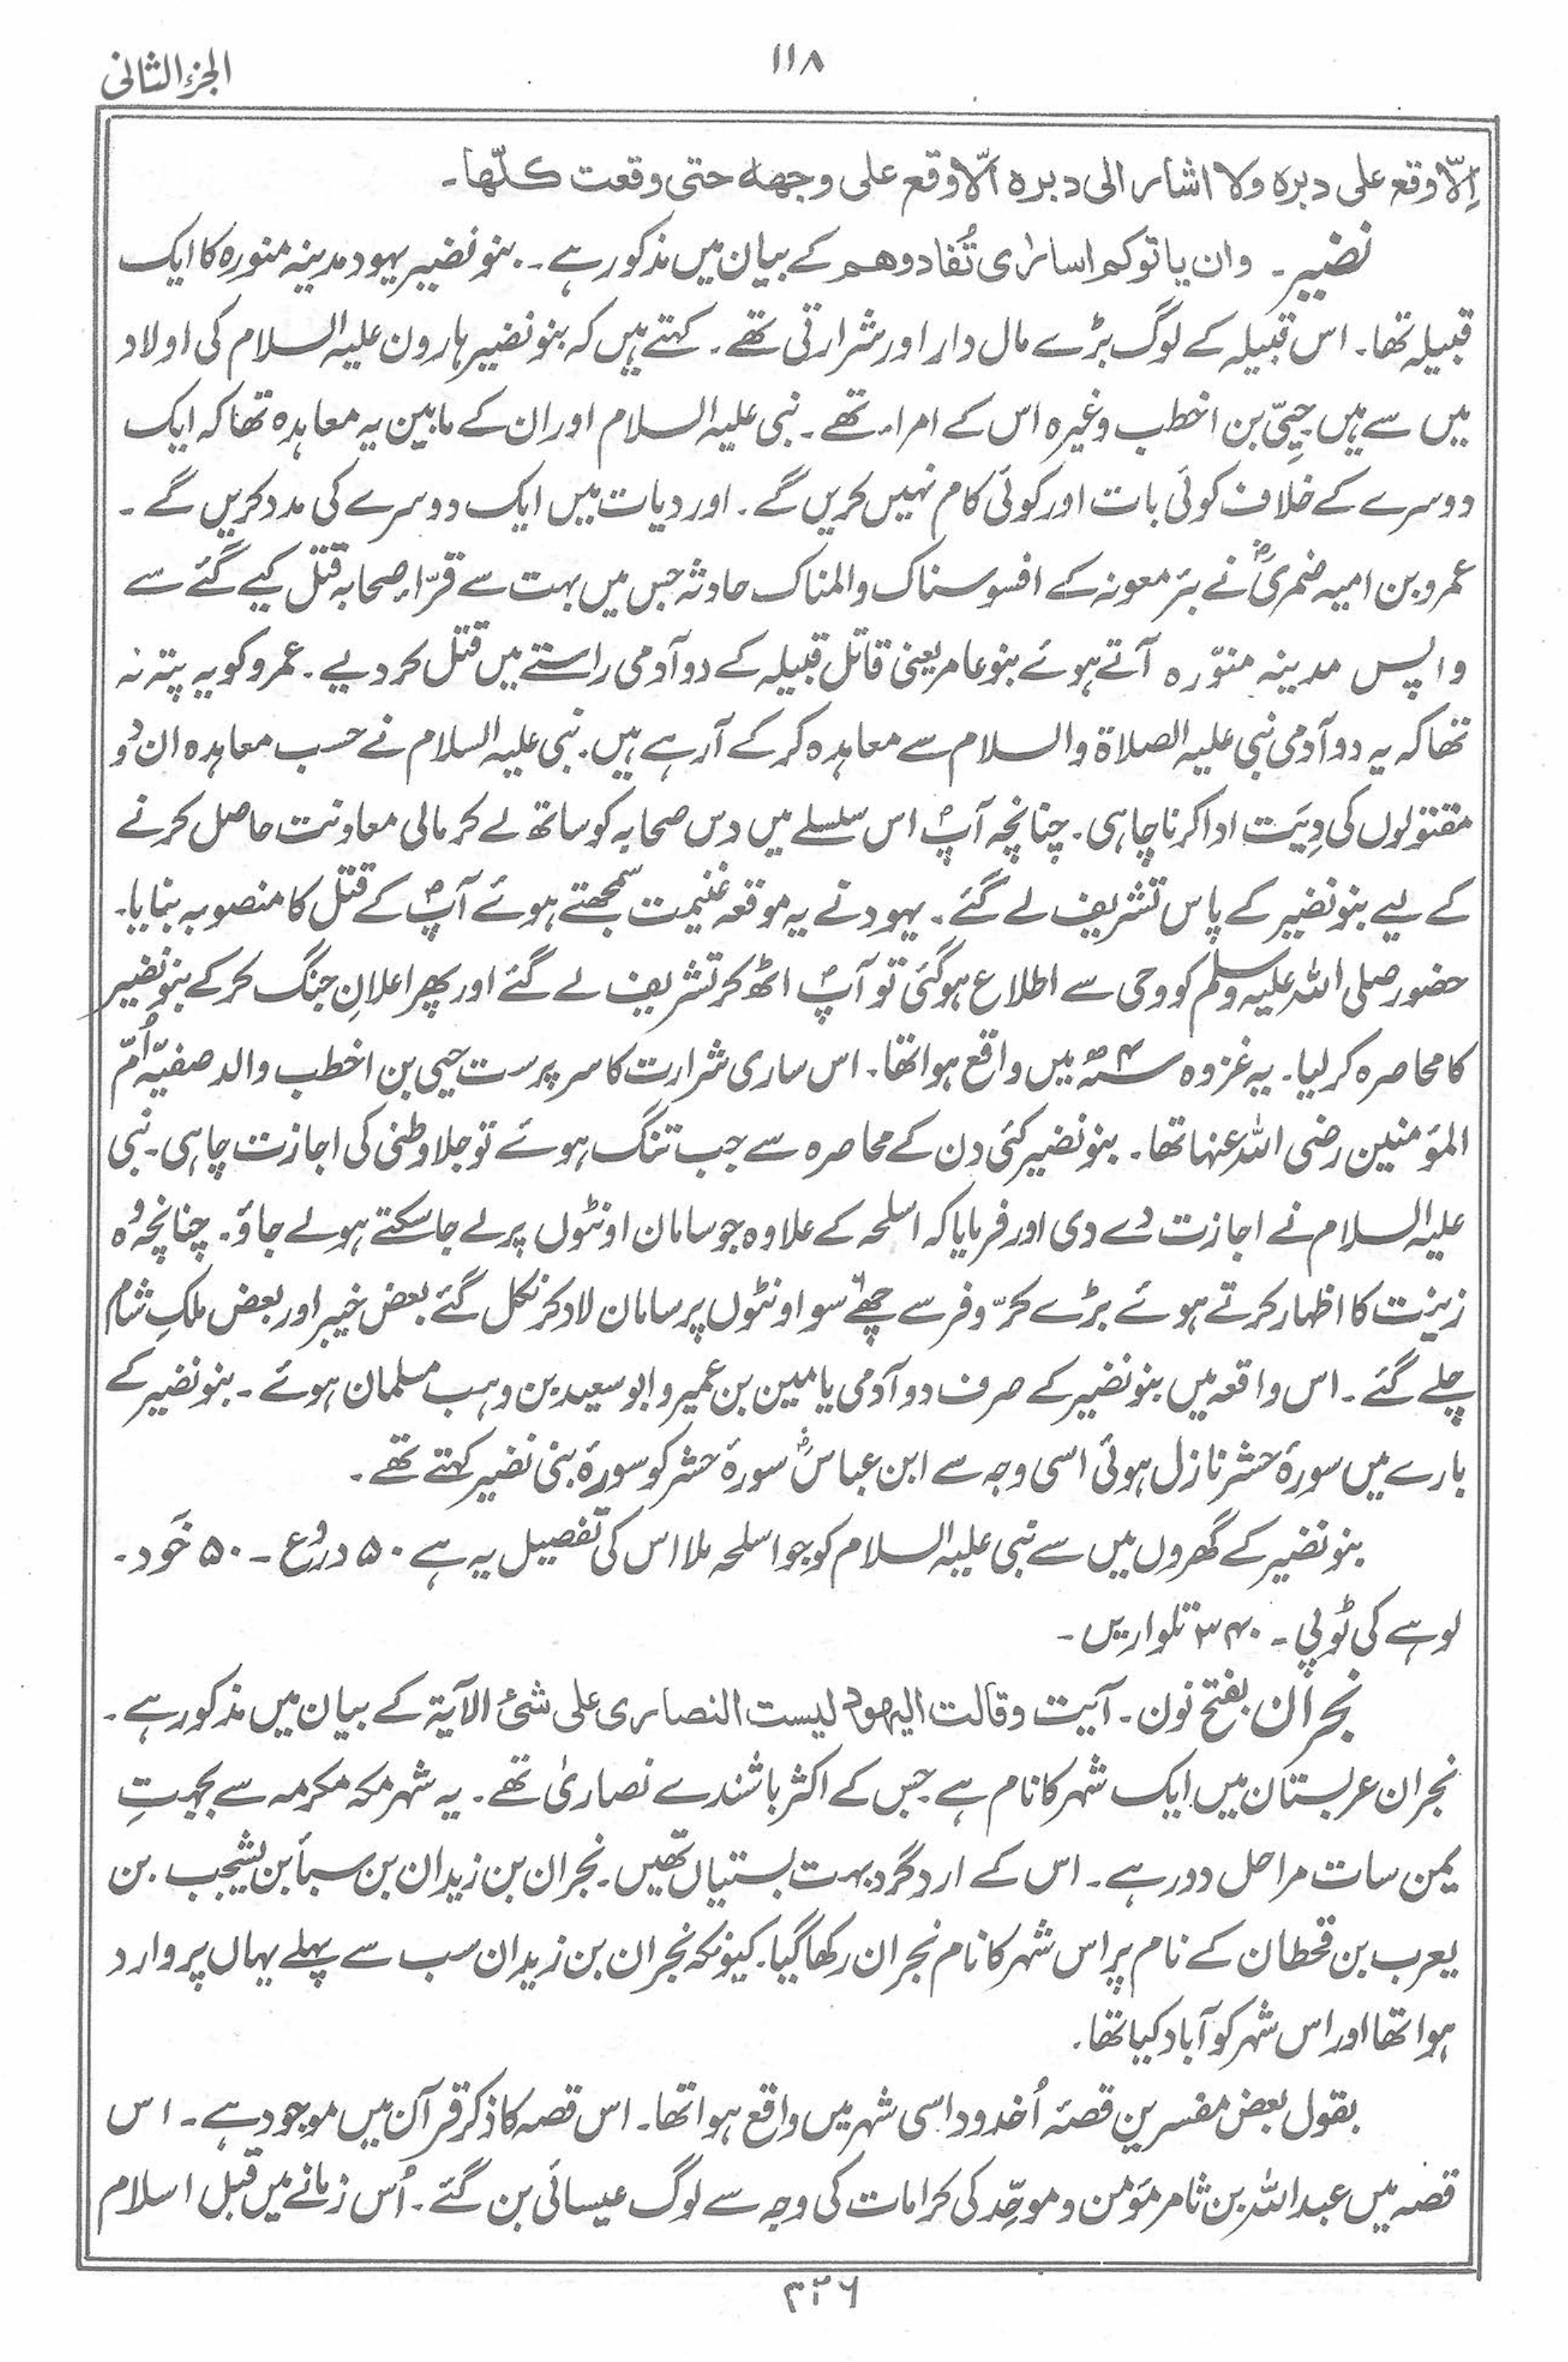 الجزء الثانی
۱۱۸
اِلّا وقع علی دبرہ ولا اشار الی دبرہ الّا وقع علی وجھہ حتی وقعت کلّھا۔
نضیر۔ وان یاتوکم اسارٰی تُفادوھم کے بیان میں مذکور ہے۔ بنو نضیر یہود مدینہ منورہ کا ایک
قبیلہ تھا۔ اس قبیلہ کے لوگ بڑے مال دار اور شرارتی تھے۔ کہتے ہیں کہ بنو نضیر ہارون علیہ السلام کی اولاد
میں سے ہیں حِییّ بن اخطب وغیرہ اس کے امراء تھے۔ نبی علیہ السلام اور ان کے مابین یہ معاہدہ تھا کہ ایک
دوسرے کے خلاف کوئی بات اور کوئی کام نہیں کریں گے۔ اور دیات میں ایک دوسرے کی مدد کریں گے۔
عمرو بن امیہ ضمریؓ نے بئر معونہ کے افسوسناک والمناک حادثہ جس میں بہت سے قرّاء صحابہ قتل کیے گئے سے
واپس مدینہ منوّرہ آتے ہوئے بنو عامر یعنی قاتل قبیلہ کے دو آدمی راستے میں قتل کر دیے۔ عمرو کو یہ پتہ نہ
تھا کہ یہ دو آدمی نبی علیہ الصلاۃ والسلام سے معاہدہ کر کے آرہے ہیں۔ نبی علیہ السلام نے حسب معاہدہ ان دُو
مقتولوں کی دِیَت ادا کرنا چاہی۔ چنانچہ آپؐ اس سلسلے میں دس صحابہ کو ساتھ لے کر مالی معاونت حاصل کرنے
کے لیے بنو نضیر کے پاس تشریف لے گئے۔ یہود نے یہ موقعہ غنیمت سمجھتے ہوئے آپؐ کے قتل کا منصوبہ بنایا۔
حضور صلی اللہ علیہ وسلم کو وحی سے اطلاع ہوگئی تو آپؐ اٹھ کر تشریف لے گئے اور پھر اعلانِ جنگ کر کے بنو نضیر
کا محاصرہ کر لیا۔ یہ غزوہ سنہ ۴ھ میں واقع ہوا تھا۔ اس ساری شرارت کا سرپرست حیی بن اخطب والد صفیّہ اُمّ
المؤمنین رضی اللہ عنہا تھا۔ بنو نضیر کئی دن کے محاصرہ سے جب تنگ ہوئے تو جلاوطنی کی اجازت چاہی۔ نبی
علیہ السلام نے اجازت دے دی اور فرمایا کہ اسلحہ کے علاوہ جو سامان اونٹوں پر لے جا سکتے ہو لے جاؤ۔ چنانچہ وُہ
زینت کا اظہار کرتے ہوئے بڑے کرّ و فر سے چھے سو اونٹوں پر سامان لاد کر نکل گئے بعض خیبر اور بعض ملکِ شام
چلے گئے۔ اس واقعہ میں بنو نضیر کے صرف دو آدمی یامین بن عمیر و ابو سعید بن وہب مسلمان ہوئے۔ بنو نضیر کے
بارے میں سورۂ حشر نازل ہوئی اسی وجہ سے ابن عباسؓ سورۂ حشر کو سورۂ بنی نضیر کہتے تھے۔
بنو نضیر کے گھروں میں سے نبی علیہ السلام کو جو اسلحہ ملا اس کی تفصیل یہ ہے ۵۰ درُوع۔ ۵۰ خَود۔
لوہے کی ٹوپی۔ ۳۴۰ تلواریں۔
نجران بفتح نون۔ آیت وقالت الیھود لیست النصاری علی شیٔ الآیۃ کے بیان میں مذکور ہے۔
نجران عربستان میں ایک شہر کا نام ہے جس کے اکثر باشندے نصاریٰ تھے۔ یہ شہر مکہ مکرمہ سے بجہتِ
یمن سات مراحل دور ہے۔ اس کے اردگرد بہت بستیاں تھیں۔ نجران بن زیدان بن سبأ بن یشجب بن
یعرب بن قحطان کے نام پر اس شہر کا نام نجران رکھا گیا۔ کیونکہ نجران بن زیدان سب سے پہلے یہاں پر وارد
ہوا تھا اور اس شہر کو آباد کیا تھا۔
بقول بعض مفسرین قصۂ اُخدود اسی شہر میں واقع ہوا تھا۔ اس قصہ کا ذکر قرآن میں موجود ہے۔ اس
قصہ میں عبداللہ بن ثامر مؤمن و موحِّد کی کرامات کی وجہ سے لوگ عیسائی بن گئے۔ اُس زمانے میں قبل اسلام
۳۲۶